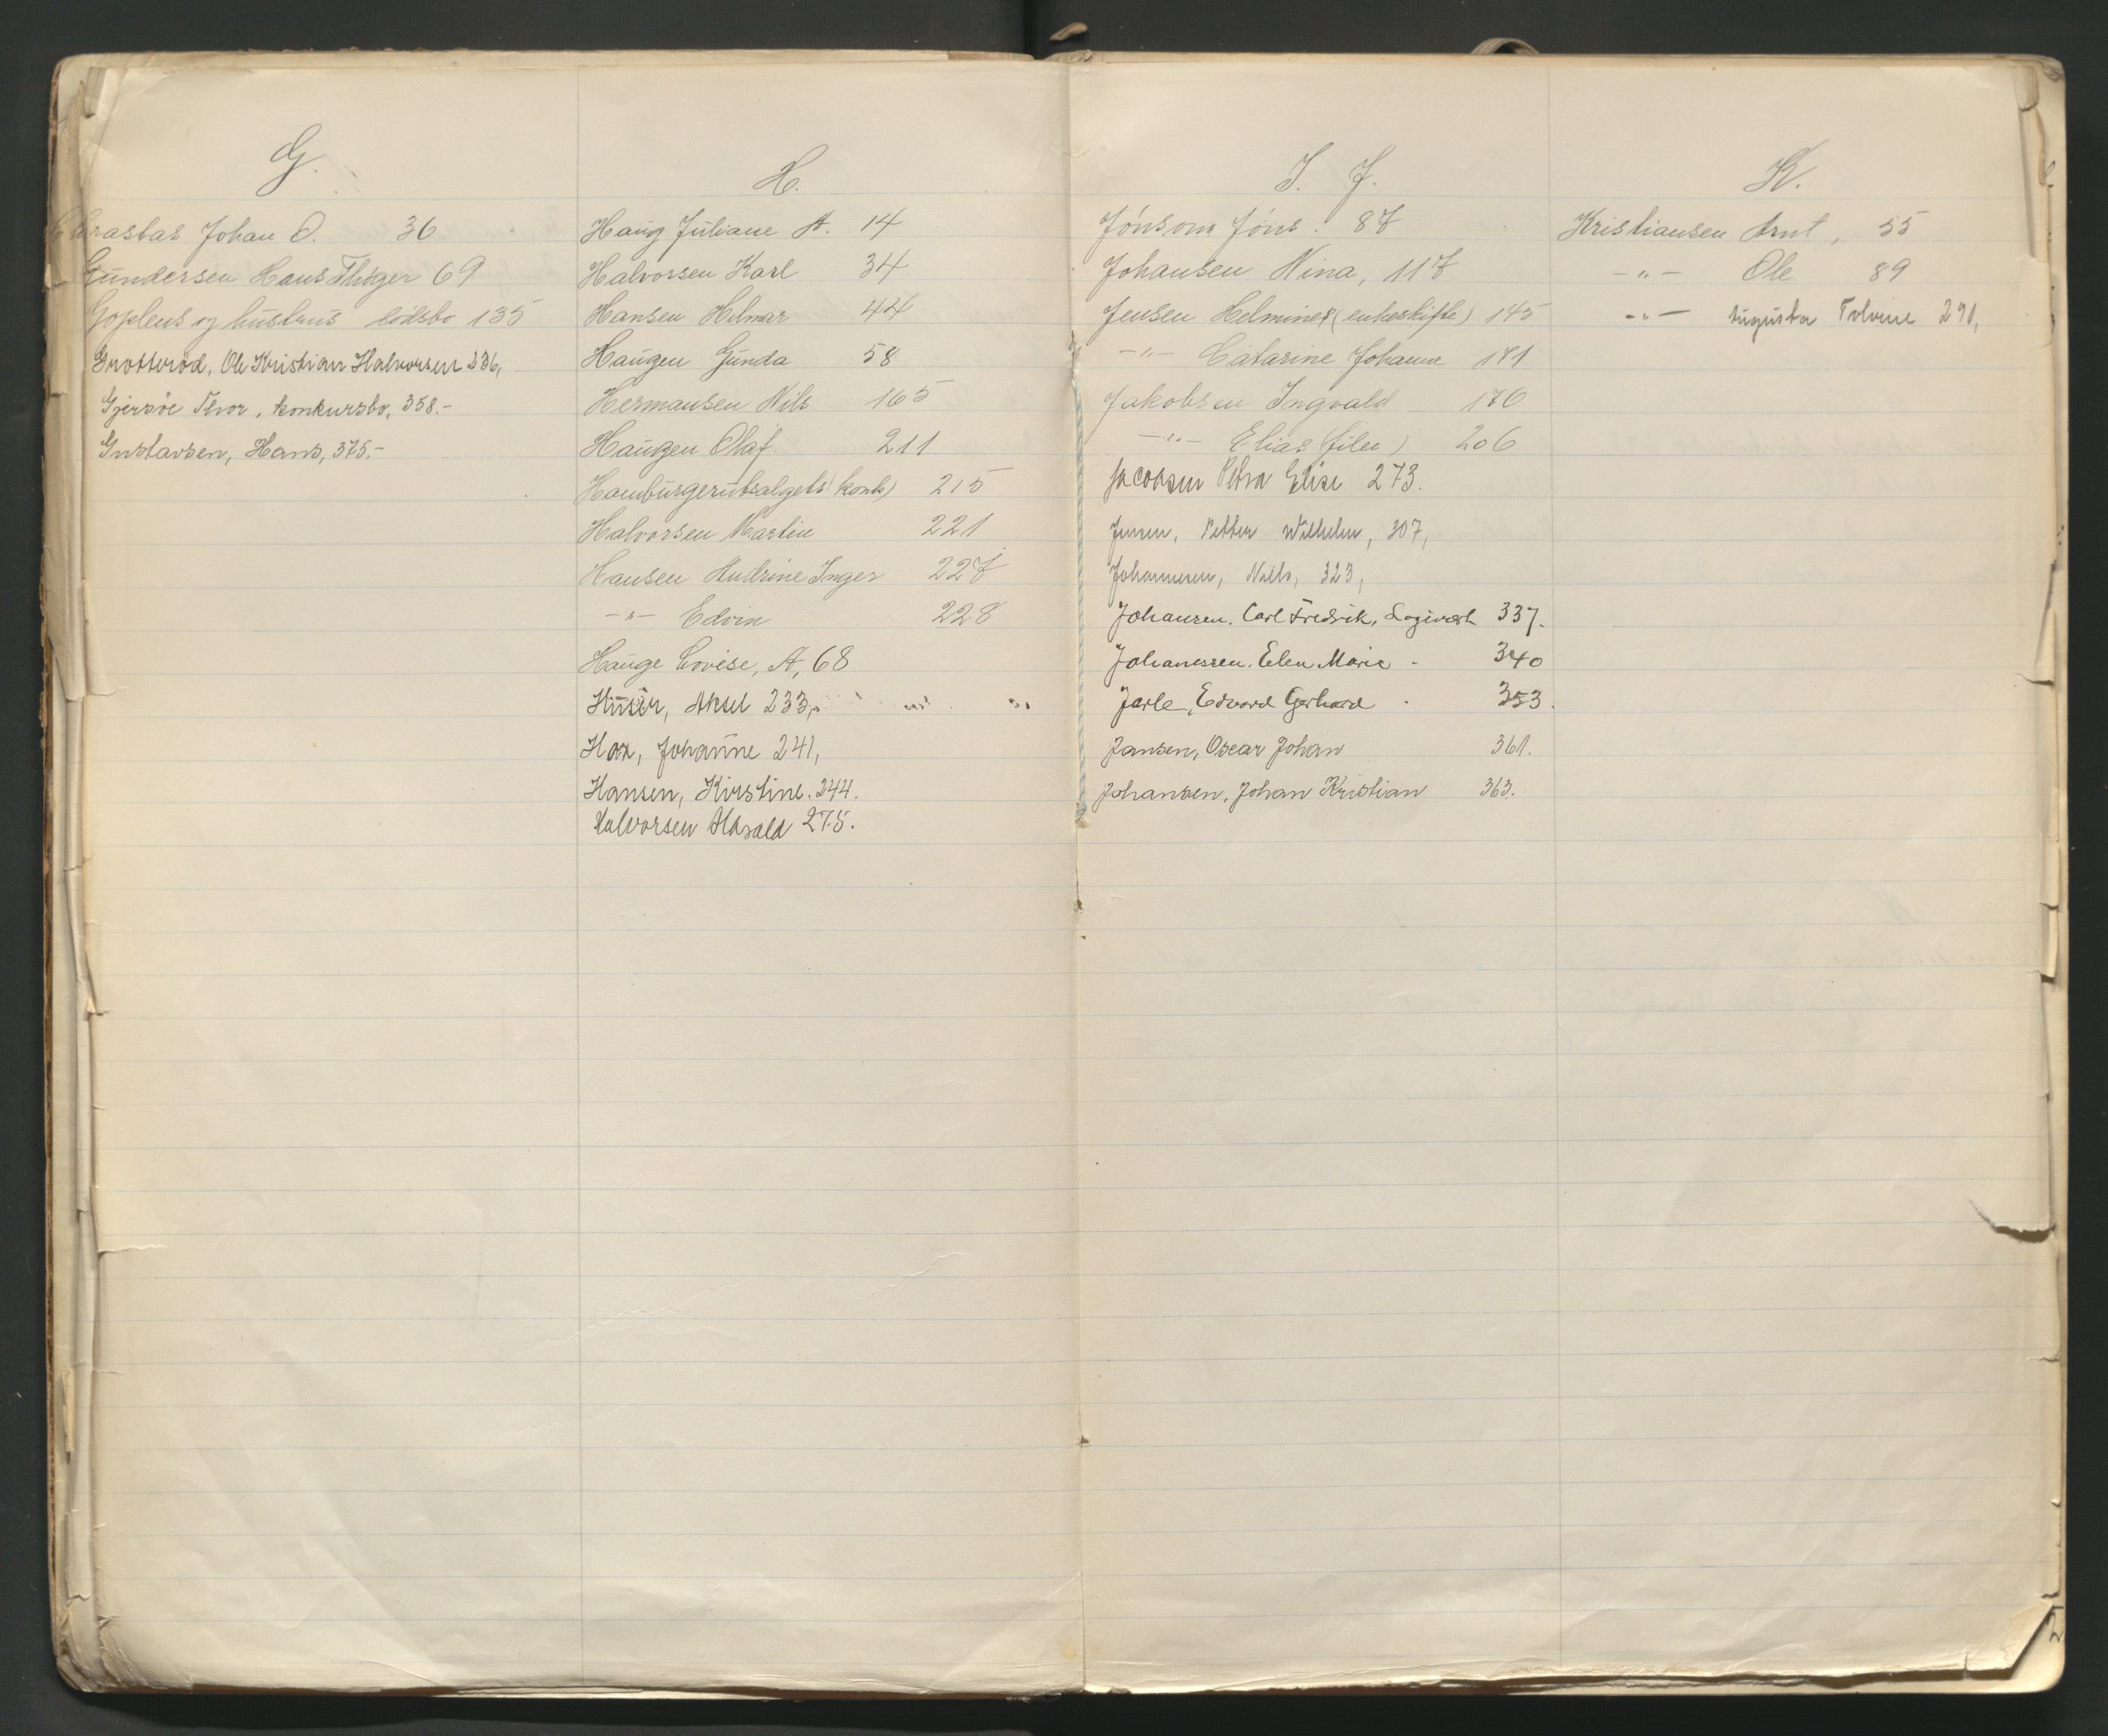 G.
Johan O. 36
Gundersen Hans Thøger 69
Goplens og hustrus dödsbo 135
Grotteröd, Ole Kristian Halvorsen 336,
Gjersöe Thor, konkursbo, 358.-
Gustavsen, Hans, 375.-
H.
Haug Juliane A. 14
Halvorsen Karl 34
Hansen Helmar 44
Haugen Gunda 58
Hermansen Nils 165
Haugen Olaf 211
Hamburgerutsalgets (konk) 215
Halvorsen Martin 221
Hansen Andrine Inger 227
-"- Edvin 228
Hauge Lovise, A, 68
Aksel 233,
Hax, Johanne 241,
Hansen, Kirstine. 244.
Halvorsen Harald 275.
I. J.
Jónsson Jóns. 87
Johansen Nina, 117
Jensen Helmines (enkeskifte) 145
-"- Catarine Johanne 181
Jakobsen Ingvald 176
-"- Elias (filer) 206
Jacobsen Petra Elise 273.
Jensen, Petter Wilhelm, 307,
Johannesen, Nills, 323,
Johansen. Carl Fredrik, Logivært 337.
Johanessen. Elen Marie - 340
Jarle, Edvard Gerhard - 353.
Jansen, Oscar Johan 361.
Johansen, Johan Kristian 363.
K.
Kristiansen Arnt, 55
-"- Ole 89
-"- Augusta Tolvine 291,